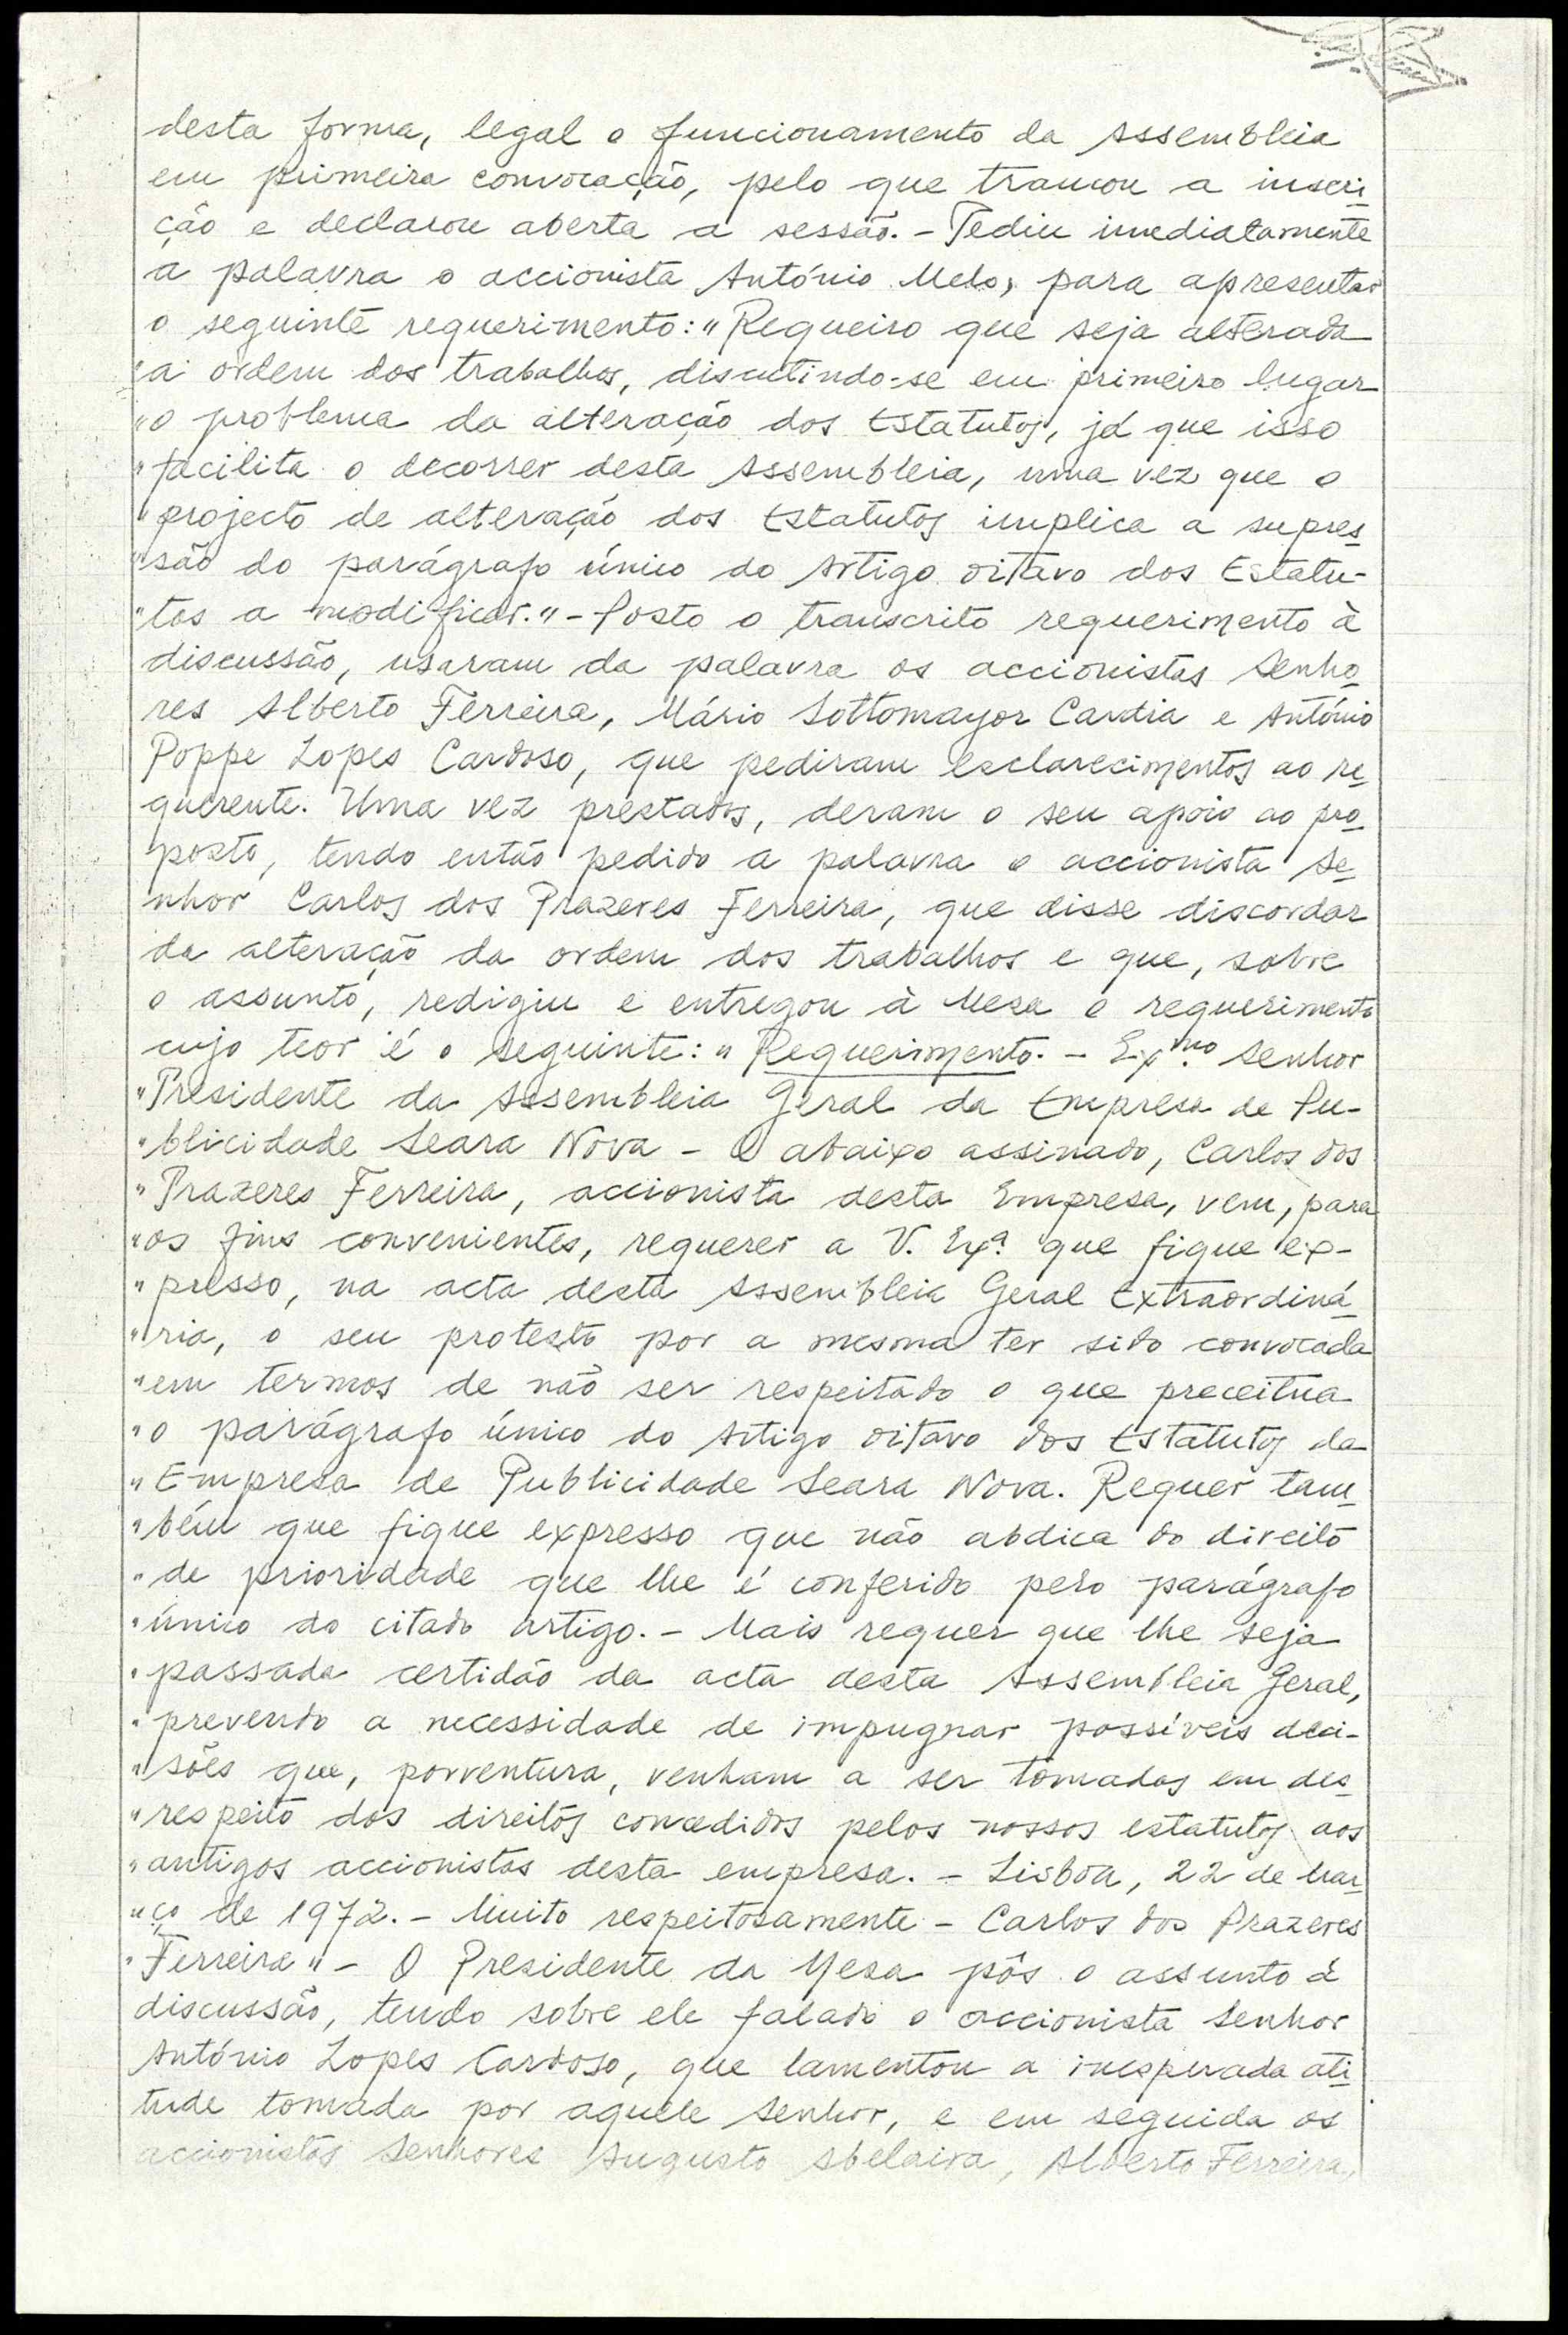 desta forma, legal o funcionamento da Assembleia
em primeira convocação, pelo que trancou a inscri-
ção e declarou aberta a sessão. - Pediu imediatamente
a palavra o accionista António Melo, para apresentar
o seguinte requerimento: "Requeiro que seja alterada
"a ordem dos trabalhos, discutindo-se em primeiro lugar
"o problema da alteração dos Estatutos, já que isso
"facilita o decorrer desta Assembleia, uma vez que o
"projecto de alteração dos Estatutos implica a supres-
"são do parágrafo único do Artigo oitavo dos Estatu-
"tos a modificar." - Posto o transcrito requerimento à
discussão, usaram da palavra os accionistas Senho-
res Alberto Ferreira, Mário Sottomayor Cardia e António
Poppe Lopes Cardoso, que pediram esclarecimentos ao re-
querente. Uma vez prestados, deram o seu apoio ao pro-
posto, tendo então pedido a palavra o accionista Se-
nhor Carlos dos Prazeres Ferreira, que disse discordar
da alteração da ordem dos trabalhos e que, sobre
o assunto, redigiu e entregou à Mesa o requerimento
cujo teor é o seguinte: "Requerimento. - Exmo. Senhor
"Presidente da Assembleia Geral da Empresa de Pu-
"blicidade Seara Nova - O abaixo assinado, Carlos dos
"Prazeres Ferreira, accionista desta Empresa, vem, para
"os fins convenientes, requerer a V. Exª. que fique ex-
"presso, na acta desta Assembleia Geral Extraordiná-
"ria, o seu protesto por a mesma ter sido convocada
"em termos de não ser respeitado o que preceitua
"o parágrafo único do Artigo oitavo dos Estatutos da
"Empresa de Publicidade Seara Nova. Requer tam-
"bém que fique expresso que não abdica do direito
"de prioridade que lhe é conferido pelo parágrafo
"único do citado artigo. - Mais requer que lhe seja
"passada certidão da acta desta Assembleia Geral,
"prevendo a necessidade de impugnar possíveis deci-
"sões que, porventura, venham a ser tomadas em des-
"respeito dos direitos concedidos pelos nossos estatutos aos
"antigos accionistas desta empresa. - Lisboa, 22 de Mar-
"ço de 1972. - Muito respeitosamente - Carlos dos Prazeres
"Ferreira" - O Presidente da Mesa pôs o assunto à
discussão, tendo sobre ele falado o accionista Senhor
António Lopes Cardoso, que lamentou a inesperada ati-
tude tomada por aquele Senhor, e em seguida os
accionistas Senhores Augusto Abelaira, Alberto Ferreira,